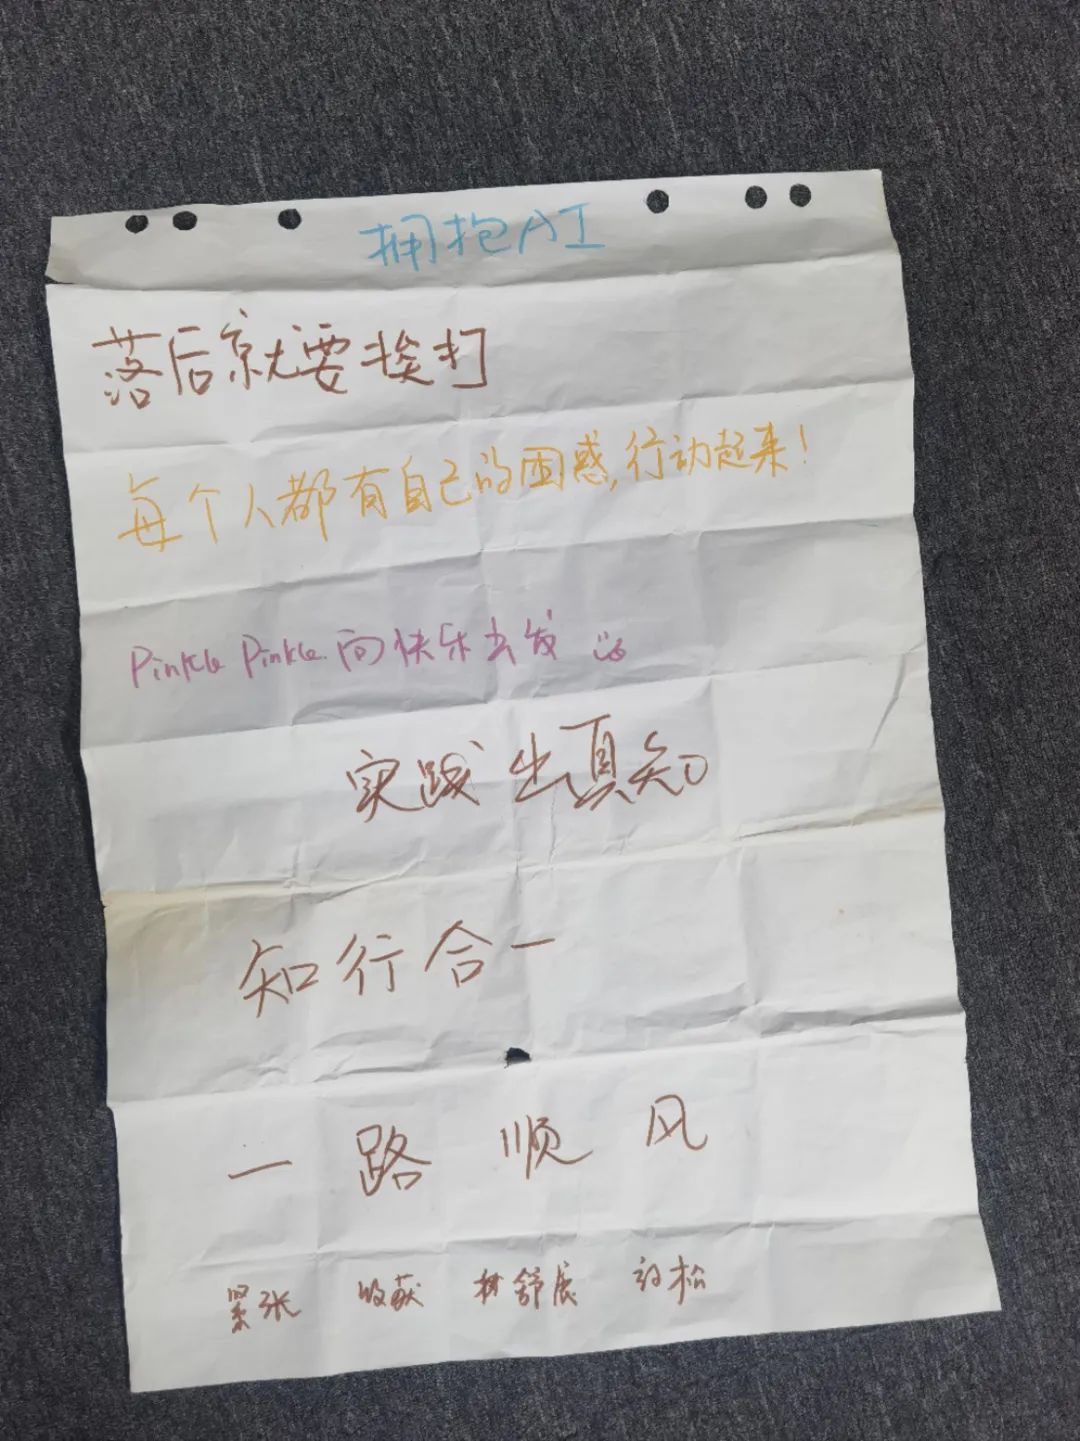 拥抱AI
落后就要挨打
每个人都有自己的困惑,行动起来!
Pinkle Pinkle 向快乐出发
实践出真知
知行合一
一路顺风
紧张 收获 舒展 放松